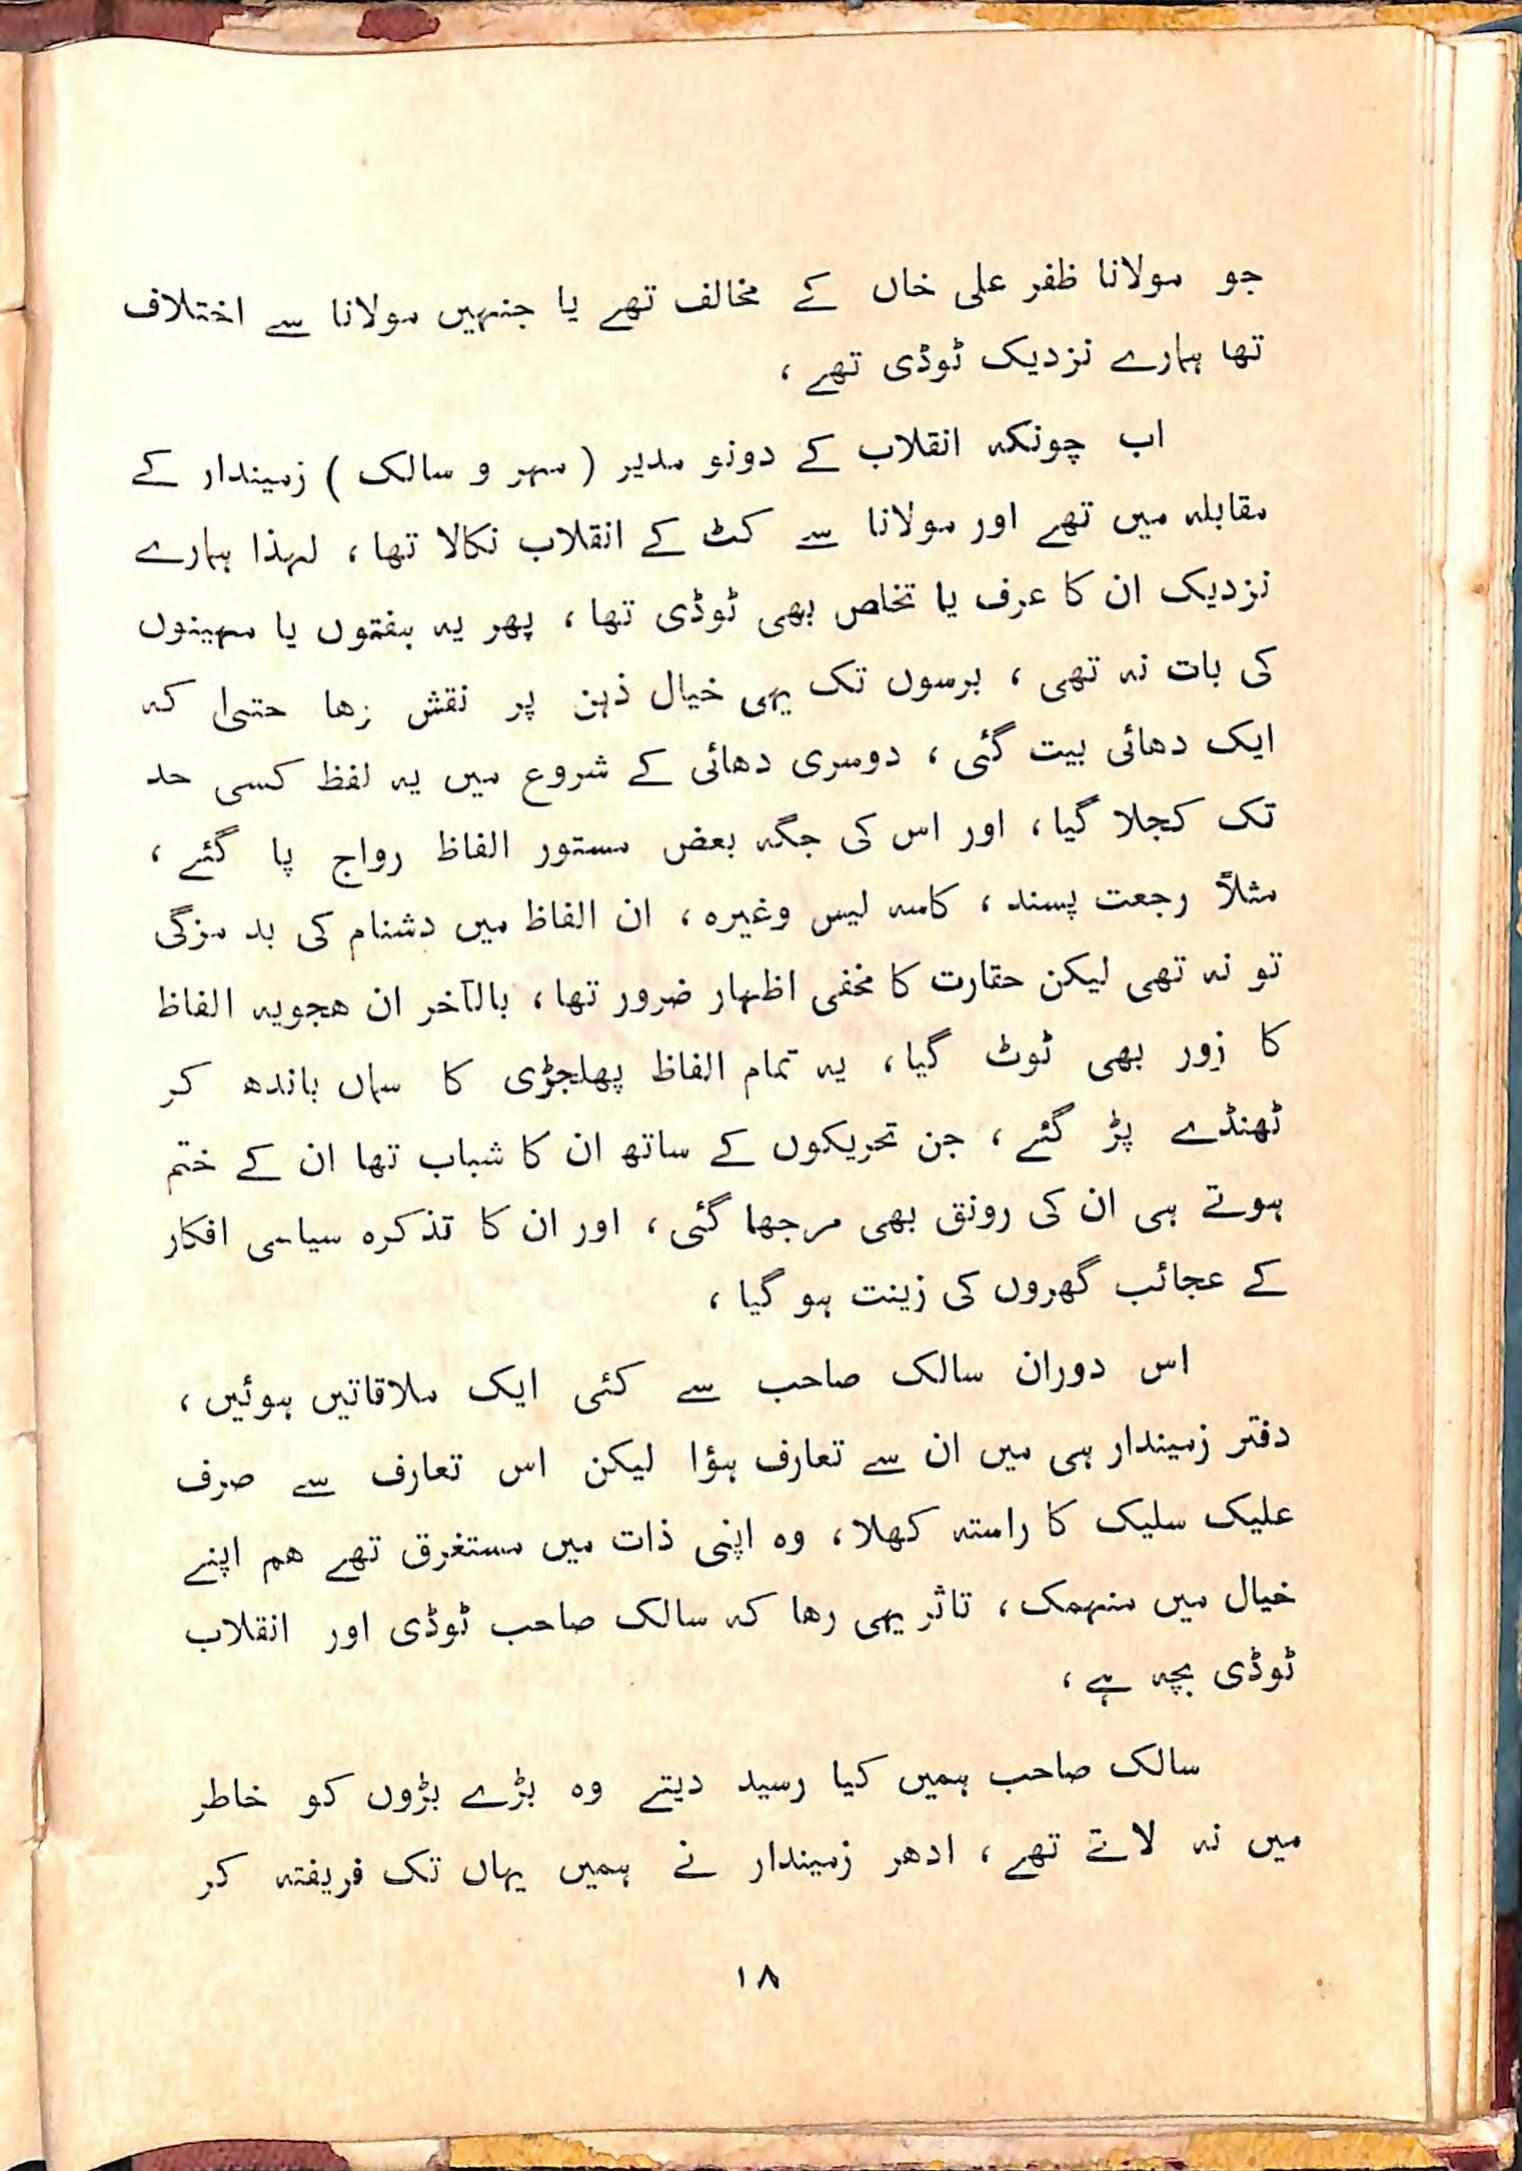 جو مولانا ظفر علی خاں کے مخالف تھے یا جنہیں مولانا سے اختلاف
تھا ہمارے نزدیک ٹوڈی تھے ،
اب چونکہ انقلاب کے دونو مدیر ( مہر و سالک ) زمیندار کے
مقابلہ میں تھے اور مولانا سے کٹ کے انقلاب نکالا تھا ، لہذا ہمارے
نزدیک ان کا عرف یا تخلص بھی ٹوڈی تھا ، پھر یہ ہفتوں یا مہینوں
کی بات نہ تھی ، برسوں تک یہی خیال ذہن پر نقش رھا حتیٰ کہ
ایک دھائی بیت گئی ، دوسری دھائی کے شروع میں یہ لفظ کسی حد
تک کجلا گیا ، اور اس کی جگہ بعض مستور الفاظ رواج پا گئے ،
مثلاً رجعت پسند ، کاسہ لیس وغیرہ ، ان الفاظ میں دشنام کی بد مزگی
تو نہ تھی لیکن حقارت کا مخفی اظہار ضرور تھا ، بالآخر ان ھجویہ الفاظ
کا زور بھی ٹوٹ گیا ، یہ تمام الفاظ پھلجڑی کا سماں باندھ کر
ٹھنڈے پڑ گئے ، جن تحریکوں کے ساتھ ان کا شباب تھا ان کے ختم
ہوتے ہی ان کی رونق بھی مرجھا گئی ، اور ان کا تذکرہ سیاسی افکار
کے عجائب گھروں کی زینت ہو گیا ،
اس دوران سالک صاحب سے کئی ایک ملاقاتیں ہوئیں ،
دفتر زمیندار ہی میں ان سے تعارف ہؤا لیکن اس تعارف سے صرف
علیک سلیک کا راستہ کھلا ، وہ اپنی ذات میں مستغرق تھے ھم اپنے
خیال میں منہمک ، تاثر یہی رھا کہ سالک صاحب ٹوڈی اور انقلاب
ٹوڈی بچہ ہے ،
سالک صاحب ہمیں کیا رسید دیتے وہ بڑے بڑوں کو خاطر
میں نہ لاتے تھے ، ادھر زمیندار نے ہمیں یہاں تک فریفتہ کر
۱۸